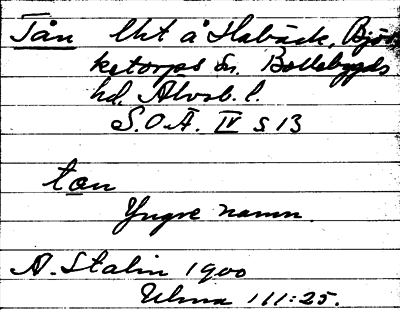 Tån lht å Habäck, Björ
ketorps sn. Bollebygds
hd. Älvsb. l.
S.O.Ä. IV s 13
tån
Yngre namn.
A. Stalin 1900
Ulma 111:25.